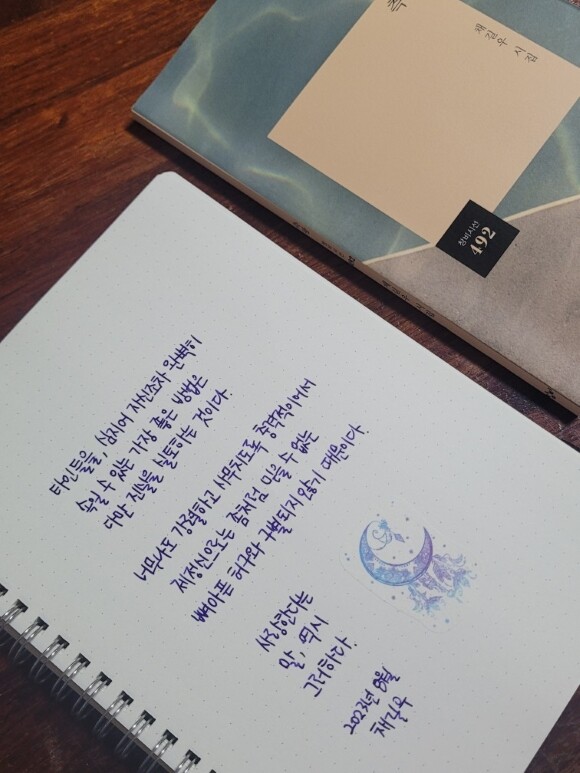 측
채길우 시집
창비시선
492
타인들을, 심지어 자신조차 완벽히
속일 수 있는 가장 좋은 방법은
다만 진실을 실토하는 것이다.
너무나도 강렬하고 사무치도록 충격적이어서
제정신으로는 좀처럼 믿을 수 없는
뼈아픈 허구와 구별되지 않기 때문이다.
사랑한다는
말, 역시
그러하다.
2023년 8월
채길우